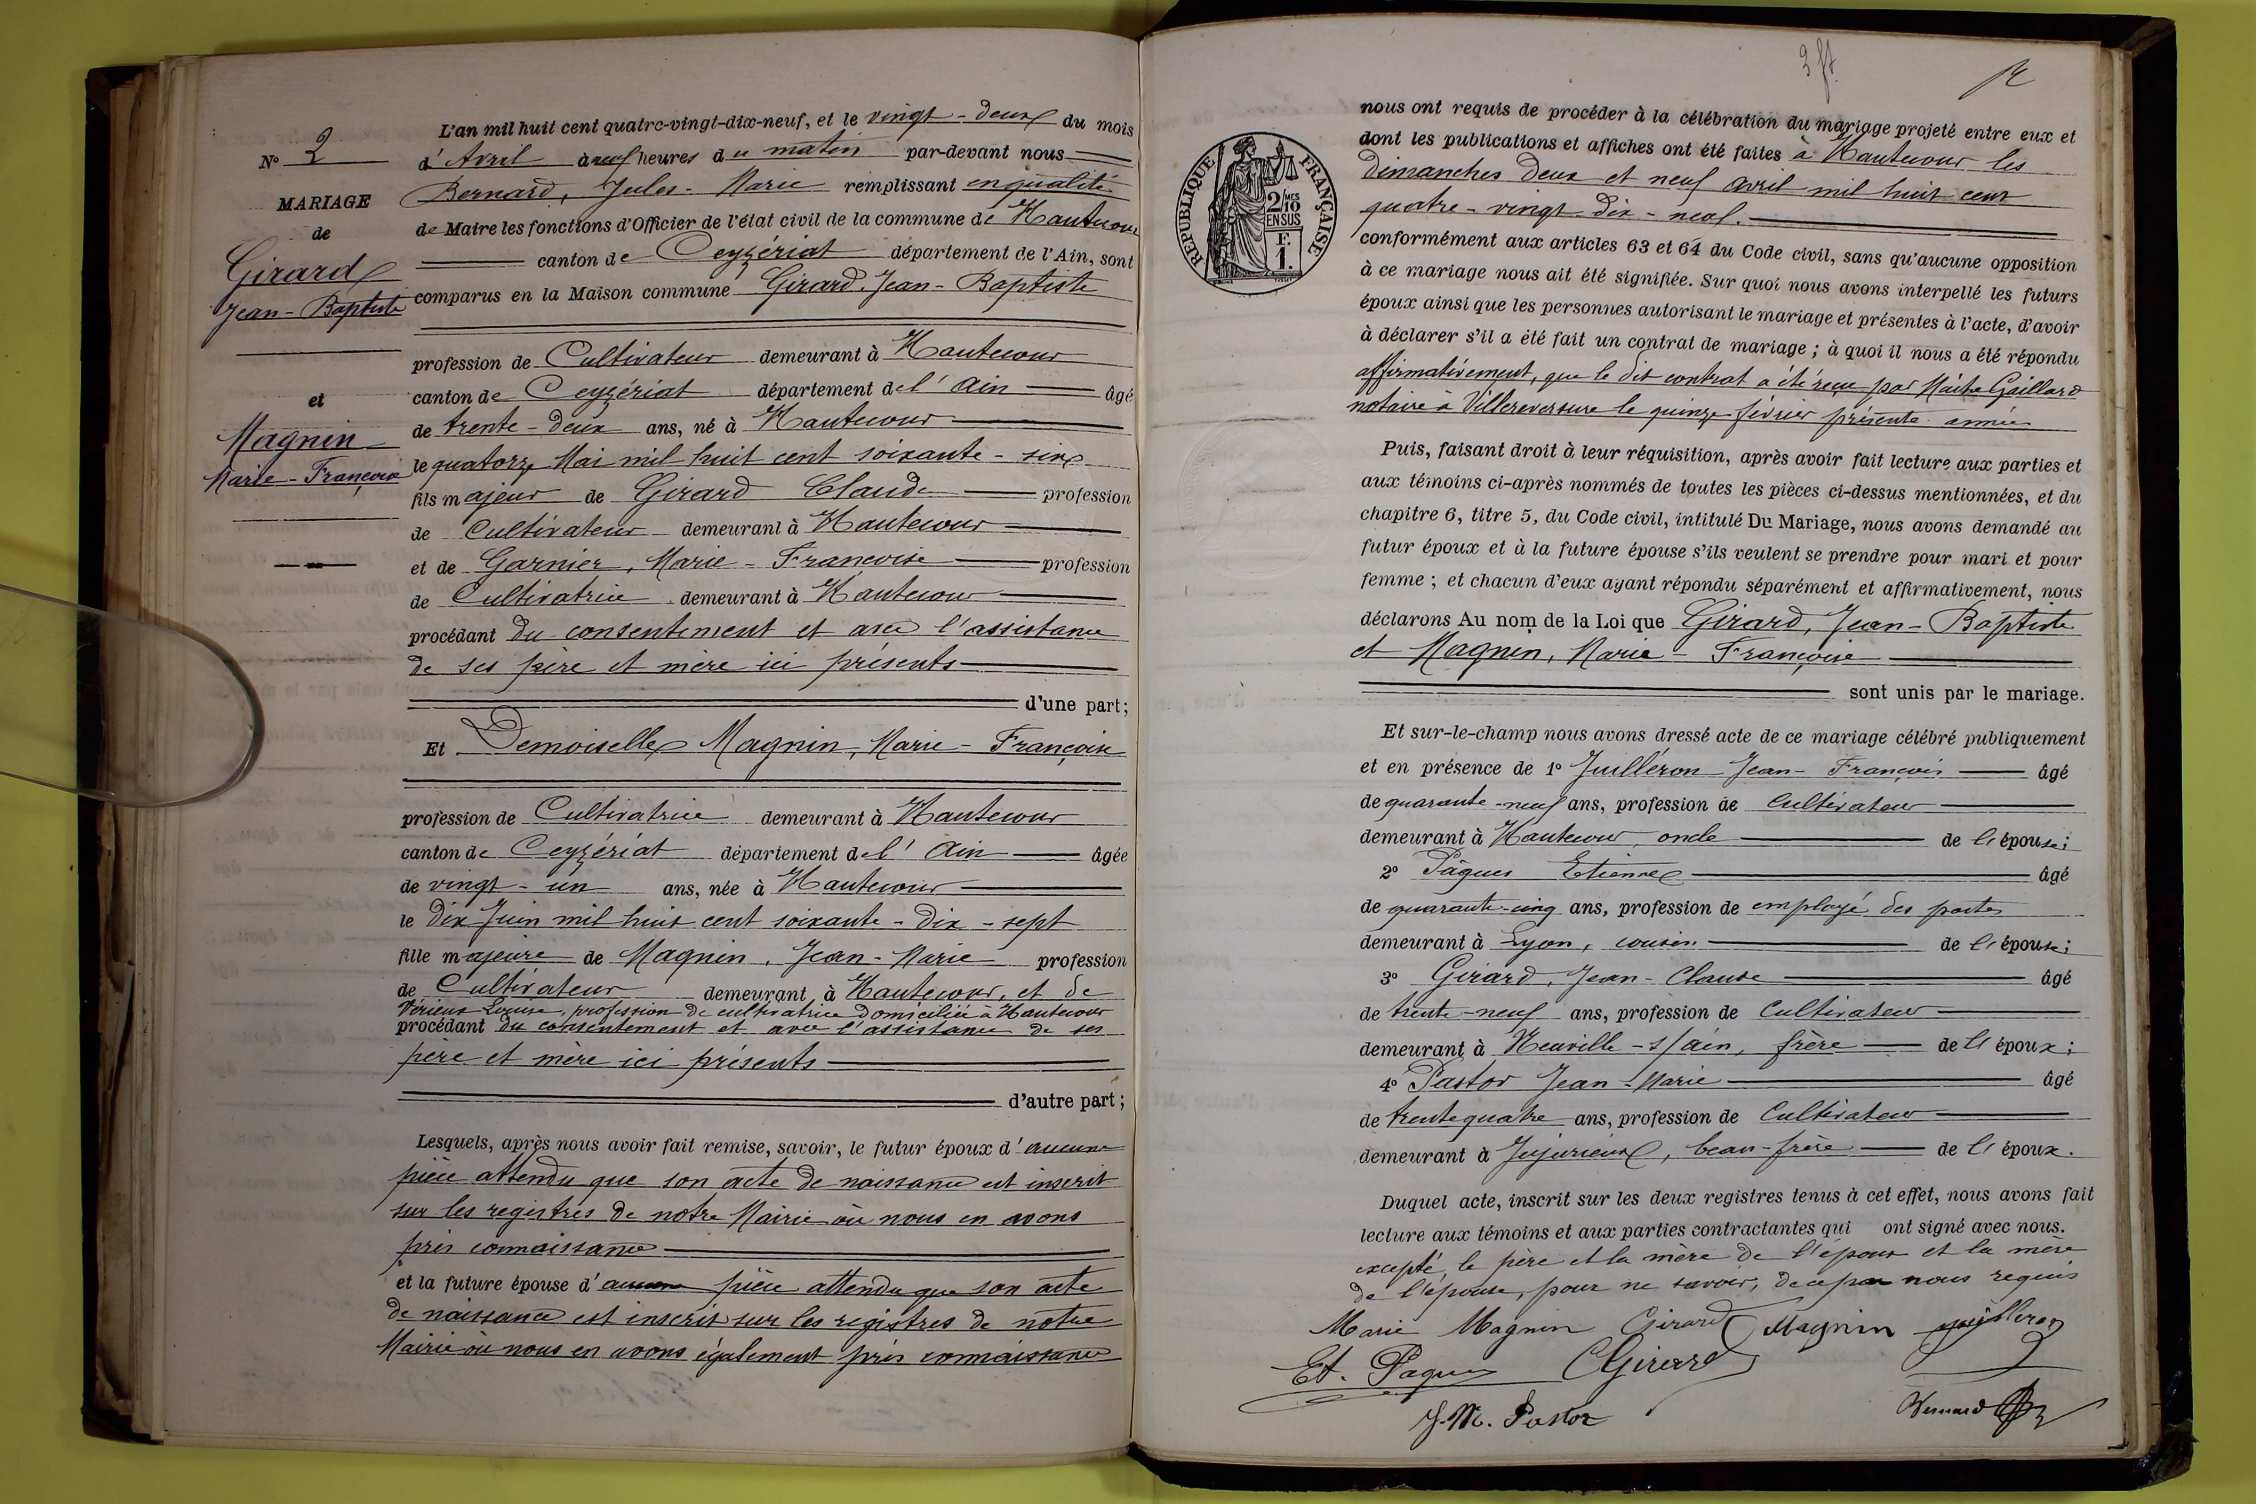 N° 2
MARIAGE
de
Girard
Jean-Baptiste
et
Magnin
Marie-Françoise
L'an mil huit cent quatre-vingt-dix-neuf, et le vingt-deux du mois
d'Avril à neuf heures du matin par-devant nous
Bernard, Jules-Marie remplissant en qualité
de Maire les fonctions d'Officier de l'état civil de la commune de Hautecour
canton de Ceyzériat département de l'Ain, sont
comparus en la Maison commune Girard, Jean-Baptiste
profession de Cultivateur demeurant à Hautecour
canton de Ceyzériat département de l'Ain âgé
de trente-deux ans, né à Hautecour
le quatorze Mai mil huit cent soixante-six
fils majeur de Girard Claude profession
de Cultivateur demeurant à Hautecour
et de Garnier, Marie-Françoise profession
de Cultivatrice demeurant à Hautecour
procédant du consentement et avec l'assistance
de ses père et mère ici présents
d'une part;
Et Demoiselle Magnin, Marie-Françoise
profession de Cultivatrice demeurant à Hautecour
canton de Ceyzériat département de l'Ain âgée
de vingt-un ans, née à Hautecour
le dix Juin mil huit cent soixante-dix-sept
fille majeure de Magnin, Jean-Marie profession
de Cultivateur demeurant à Hautecour, et de
Louise, profession de cultivatrice domiciliée à Hautecour
procédant du consentement et avec l'assistance de ses
père et mère ici présents
d'autre part;
Lesquels, après nous avoir fait remise, savoir, le futur époux d'aucune
pièce attendu que son acte de naissance est inscrit
sur les registres de notre Mairie où nous en avons
pris connaissance
et la future épouse d'aucune pièce attendu que son acte
de naissance est inscrit sur les registres de notre
Mairie où nous en avons également pris connaissance
nous ont requis de procéder à la célébration du mariage projeté entre eux et
dont les publications et affiches ont été faites à Hautecour les
Dimanches deux et neuf avril mil huit cent
quatre-vingt-dix-neuf.
RÉPUBLIQUE FRANÇAISE
2/10MES
EN SUS
F.
1.
conformément aux articles 63 et 64 du Code civil, sans qu'aucune opposition
à ce mariage nous ait été signifiée. Sur quoi nous avons interpellé les futurs
époux ainsi que les personnes autorisant le mariage et présentes à l'acte, d'avoir
à déclarer s'il a été fait un contrat de mariage; à quoi il nous a été répondu
affirmativement, que le dit contrat a été reçu par Maître Gaillard
notaire à Villereversure le quinze février présente année
Puis, faisant droit à leur réquisition, après avoir fait lecture aux parties et
aux témoins ci-après nommés de toutes les pièces ci-dessus mentionnées, et du
chapitre 6, titre 5, du Code civil, intitulé Du Mariage, nous avons demandé au
futur époux et à la future épouse s'ils veulent se prendre pour mari et pour
femme; et chacun d'eux ayant répondu séparément et affirmativement, nous
déclarons Au nom de la Loi que Girard, Jean-Baptiste
et Magnin, Marie-Françoise
sont unis par le mariage.
Et sur-le-champ nous avons dressé acte de ce mariage célébré publiquement
et en présence de 1° Juilléron Jean-François âgé
de quarante-neuf ans, profession de Cultivateur
demeurant à Hautecour, oncle de l'épouse;
2° Pâques Etienne âgé
de quarante-cinq ans, profession de employé des postes
demeurant à Lyon, cousin de l'épouse;
3° Girard, Jean-Claude âgé
de trente-neuf ans, profession de Cultivateur
demeurant à Neuville-s/ain, frère de l'époux;
4° Pastor Jean-Marie âgé
de trente quatre ans, profession de Cultivateur
demeurant à Jujurieux, beau-frère de l'époux.
Duquel acte, inscrit sur les deux registres tenus à cet effet, nous avons fait
lecture aux témoins et aux parties contractantes qui ont signé avec nous.
excepté, le père et la mère de l'époux et la mère
de l'épouse, pour ne savoir, de ce par nous requis
Marie Magnin Girard Magnin Juilleron
Et. Paques CGirard
J. M. Pastor Bernard